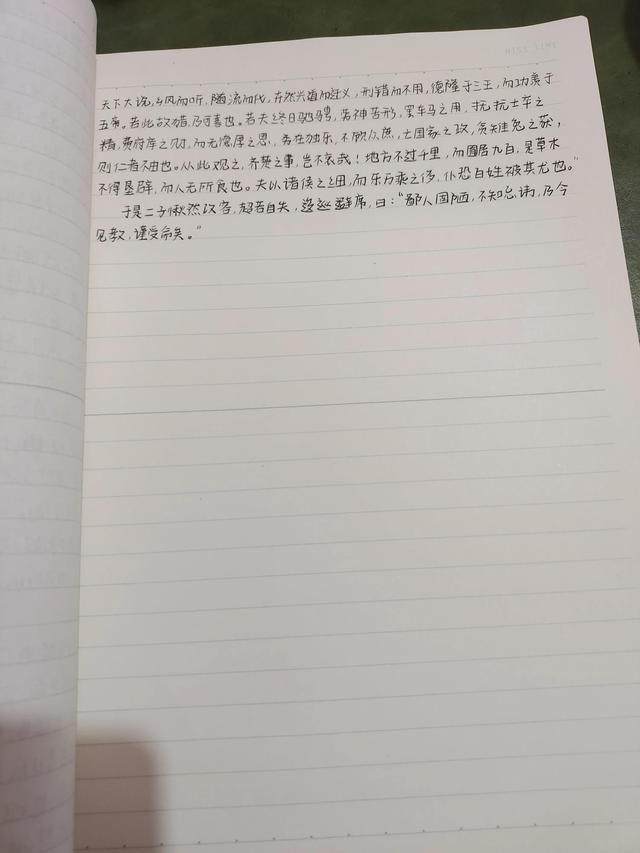 MISS TIME
天下大说,乡风而听,随流而化,卉然兴道而迁义,刑错而不用,德隆于三王,而功羡于
五帝。若此故猎,乃可喜也。若夫终日驰骋,劳神苦形,罢车马之用,抏抏士卒之
精,费府库之财,而无德厚之恩,务在独乐,不顾众庶,亡国家之政,贪雉兔之获,
则仁者不由也。从此观之,齐楚之事,岂不哀哉!地方不过千里,而囿居九百,是草木
不得垦辟,而人无所食也。夫以诸侯之细,而乐万乘之侈,仆恐百姓被其尤也。”
于是二子愀然改容,超若自失,逡巡避席,曰:“鄙人固陋,不知忌讳,乃今
见教,谨受命矣。”